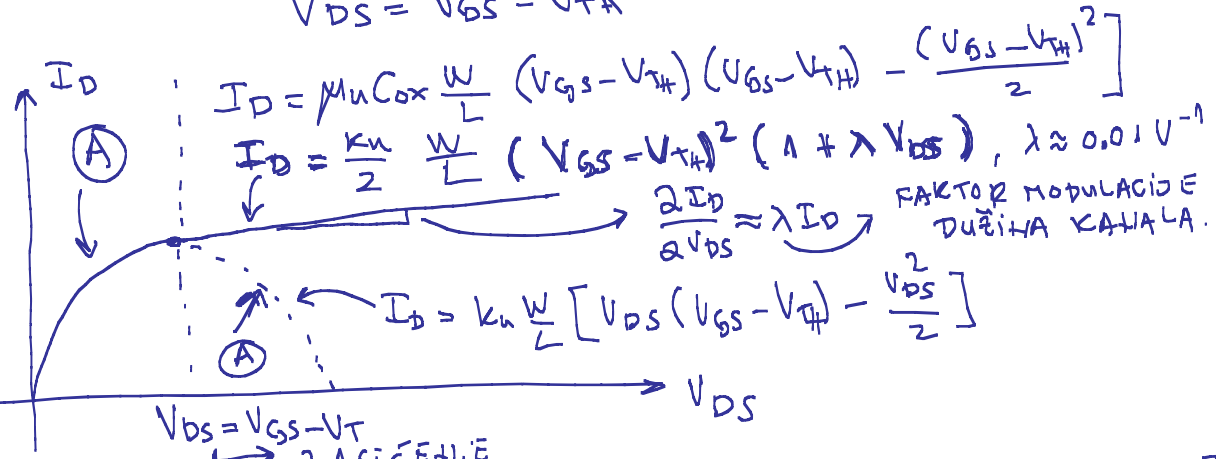 V_DS = V_GS - V_TH
I_D
I_D = μ_n C_ox W/L (V_GS - V_TH) (V_GS - V_TH) - (V_GS - V_TH)²/2 ]
A
I_D = k_n/2 W/L (V_GS - V_TH)² (1 + λ V_DS), λ ≈ 0.01 V⁻¹
∂I_D/∂V_DS ≈ λ I_D
FAKTOR MODULACIJE
DUŽINA KANALA.
I_D = k_n W/L [ V_DS (V_GS - V_TH) - V_DS²/2 ]
A
V_DS
V_DS = V_GS - V_T
ZASIĆENJE